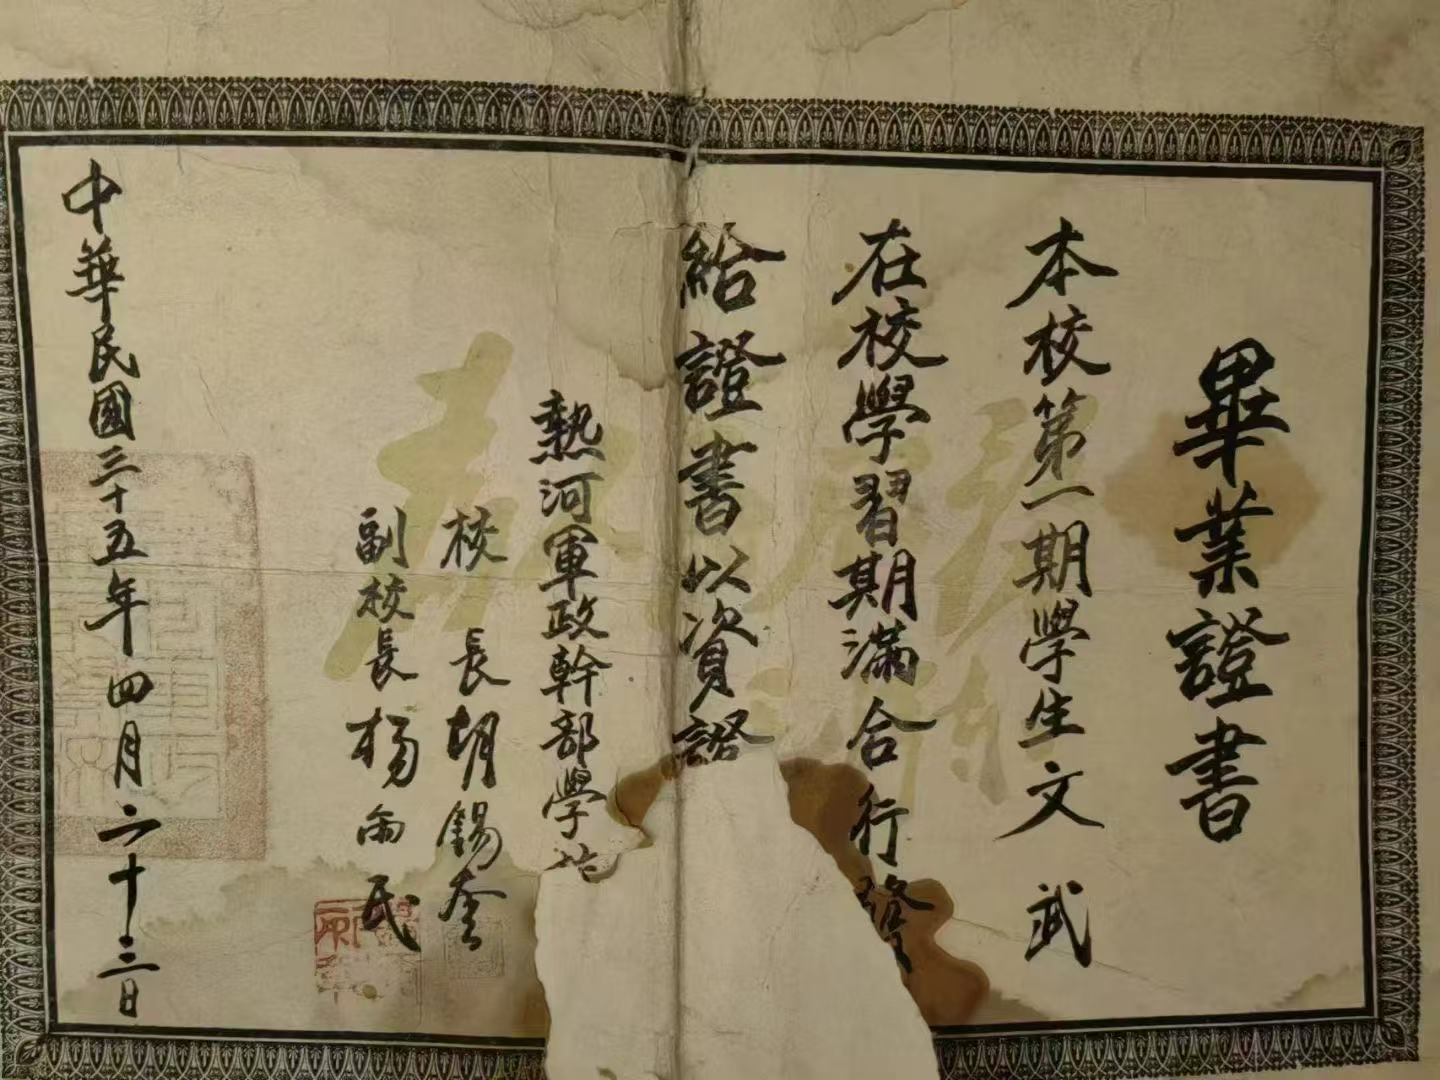 畢業證書
本校第一期學生文武
在校學習期滿合行發
給證書以資證
熱河軍政幹部學
校長胡錫奎
副校長楊雨民
中華民國三十五年四月二十三日